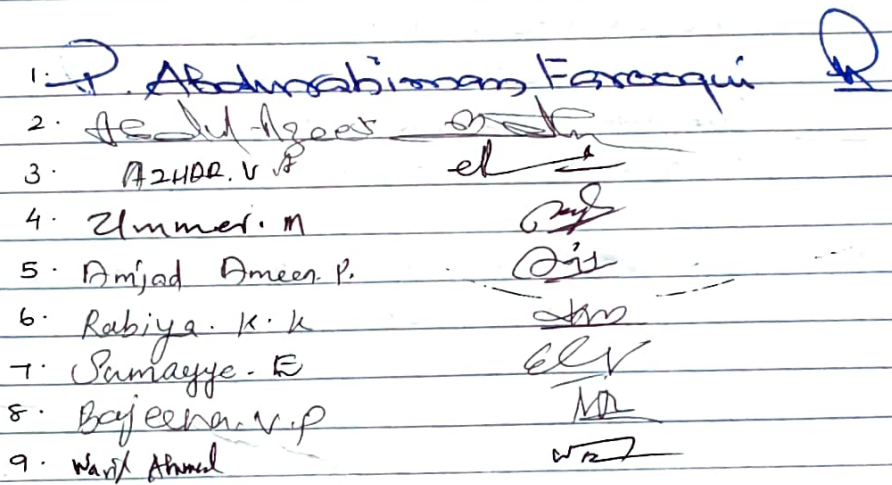 1. P. Abdurahiman Farooqui
2. Abdul Azeez
3. AZHAR. V A
4. Ummer. M
5. Amjad Ameen. P.
6. Rabiya. K. K
7. Sumayye. E
8. Bajeena. V. P
9. Warix Ahmed